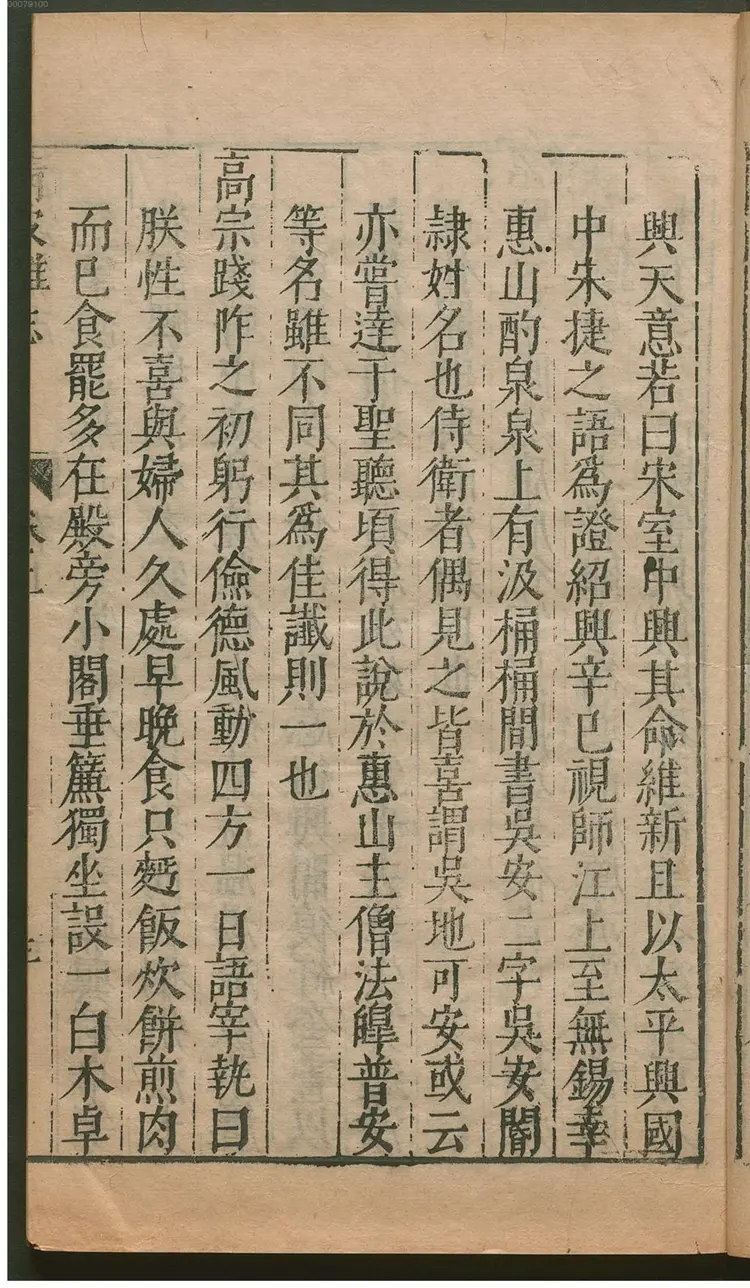 興天意若曰宋室中興其命維新且以太平興國
中宋捷之語爲證紹興辛巳視師江上至無錫幸
惠山酌泉泉上有汲桶桶間書吳安二字吳安閽
隷姓名也侍衛者偶見之皆喜謂吳地可安或云
亦嘗達于聖聽頃得此說於惠山主僧法皥普安
等名雖不同其爲佳讖則一也
高宗踐阼之初躬行儉德風動四方一日語宰執曰
朕性不喜與婦人久處早晚食只麪飯炊餅煎肉
而已食罷多在殿旁小閣垂簾獨坐設一白木卓
雜志
00079100